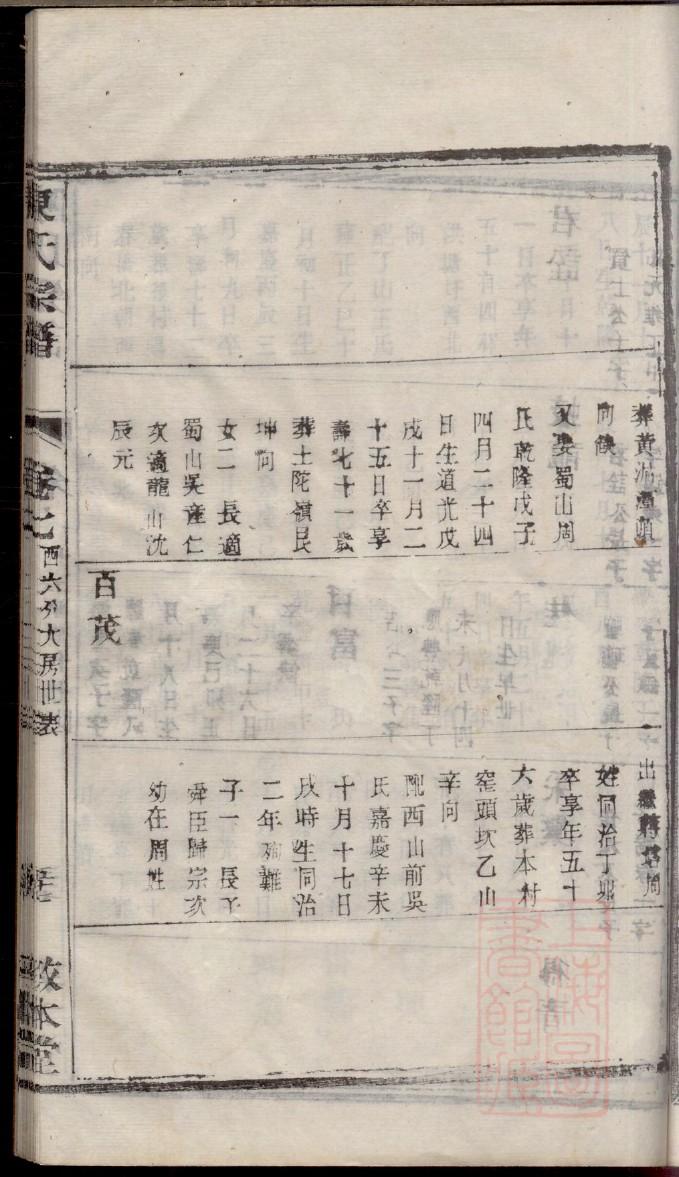 葬黄泥潭頭
向缺
又娶蜀山周
氏乾隆戊子
四月二十四
日生道光戊
戌十一月二
十五日卒享
壽七十一歲
葬土陀嶺艮
坤向
女二 長適
蜀山吳產仁
次適龍山沈
辰元
百茂
出繼蔣塔周
姓同治丁卯
卒享年五十
六歲葬本村
窰頭坎乙山
辛向
配西山前吳
氏嘉慶辛未
十月十七日
戌時生同治
二年殉難
子一 長子
舜臣歸宗次
幼在周姓
陳氏宗譜
卷七
西六分大房世表
敦本堂
上海圖書館藏